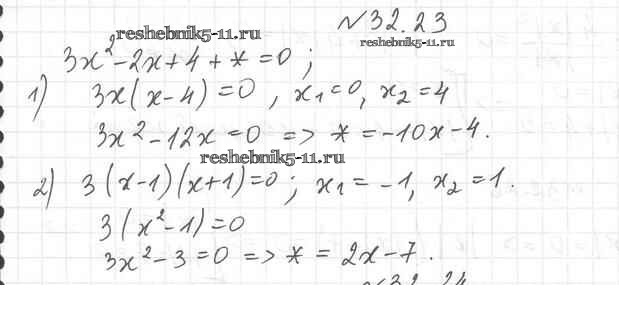 reshebnik5-11.ru
№32.23
reshebnik5-11.ru
3x²-2x+4+*=0;
1) 3x(x-4)=0, x₁=0, x₂=4
3x²-12x=0 => *=-10x-4.
reshebnik5-11.ru
2) 3(x-1)(x+1)=0; x₁=-1, x₂=1.
3(x²-1)=0
3x²-3=0 => *=2x-7.